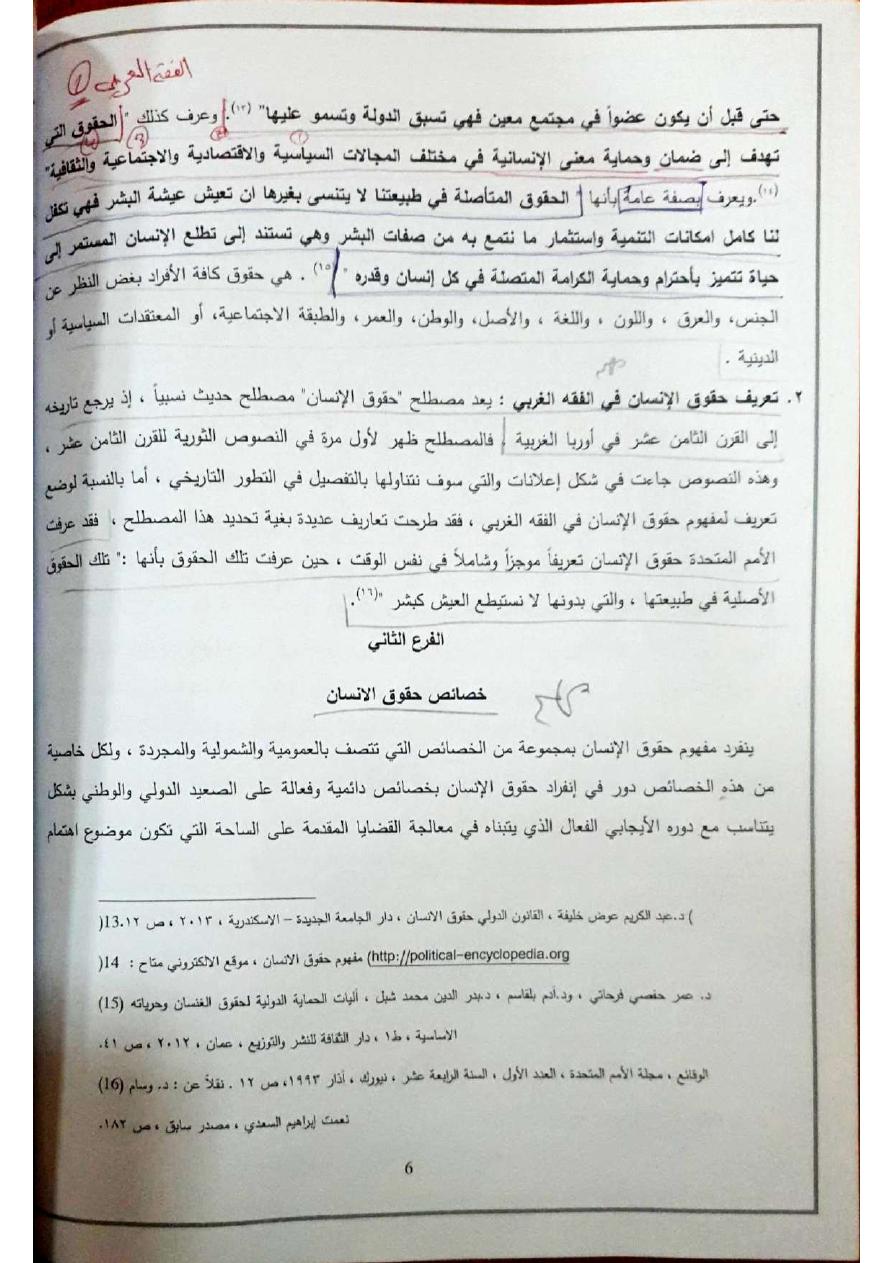 الفقه العربي ①
حتى قبل أن يكون عضواً في مجتمع معين فهي تسبق الدولة وتسمو عليها" (١٣). وعرف كذلك "الحقوق التي
تهدف إلى ضمان وحماية معنى الإنسانية في مختلف المجالات السياسية والاقتصادية والاجتماعية والثقافية"
(١٤).ويعرف بصفة عامة بأنها " الحقوق المتأصلة في طبيعتنا لا يتنسى بغيرها ان تعيش عيشة البشر فهي تكفل
لنا كامل امكانات التنمية واستثمار ما نتمع به من صفات البشر وهي تستند إلى تطلع الإنسان المستمر إلى
حياة تتميز بأحترام وحماية الكرامة المتصلة في كل إنسان وقدره " (١٥) . هي حقوق كافة الأفراد بغض النظر عن
الجنس، والعرق ، واللون ، واللغة ، والأصل، والوطن، والعمر، والطبقة الاجتماعية، أو المعتقدات السياسية أو
الدينية .
٢. تعريف حقوق الإنسان في الفقه الغربي : يعد مصطلح "حقوق الإنسان" مصطلح حديث نسبياً ، إذ يرجع تاريخه
إلى القرن الثامن عشر في أوربا الغربية . فالمصطلح ظهر لأول مرة في النصوص الثورية للقرن الثامن عشر ،
وهذه النصوص جاءت في شكل إعلانات والتي سوف نتناولها بالتفصيل في التطور التاريخي ، أما بالنسبة لوضع
تعريف لمفهوم حقوق الإنسان في الفقه الغربي ، فقد طرحت تعاريف عديدة بغية تحديد هذا المصطلح ، فقد عرفت
الأمم المتحدة حقوق الإنسان تعريفاً موجزاً وشاملاً في نفس الوقت ، حين عرفت تلك الحقوق بأنها :" تلك الحقوق
الأصلية في طبيعتها ، والتي بدونها لا نستيطع العيش كبشر "(١٦).
الفرع الثاني
خصائص حقوق الانسان
ينفرد مفهوم حقوق الإنسان بمجموعة من الخصائص التي تتصف بالعمومية والشمولية والمجردة ، ولكل خاصية
من هذه الخصائص دور في إنفراد حقوق الإنسان بخصائص دائمية وفعالة على الصعيد الدولي والوطني بشكل
يتناسب مع دوره الأيجابي الفعال الذي يتبناه في معالجة القضايا المقدمة على الساحة التي تكون موضوع اهتمام
) د.عبد الكريم عوض خليفة ، القانون الدولي حقوق الانسان ، دار الجامعة الجديدة – الاسكندرية ، ٢٠١٣ ، ص ١٢.13(
http://political-encyclopedia.org) مفهوم حقوق الانسان ، موقع الالكتروني متاح : 14(
د. عمر حفصي فرحاتي ، ود.أدم بلقاسم ، د.بدر الدين محمد شبل ، أليات الحماية الدولية لحقوق الغنسان وحرياته (15)
الاساسية ، ط١ ، دار الثقافة للنشر والتوزيع ، عمان ، ٢٠١٢ ، ص ٤١.
الوقائع ، مجلة الأمم المتحدة ، العدد الأول ، السنة الرابعة عشر ، نيورك ، أذار ١٩٩٣، ص ١٢ . نقلاً عن : د. وسام (16)
نعمت إبراهيم السعدي ، مصدر سابق ، ص ١٨٢.
6